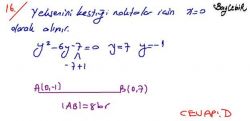 16) Y eksenini kestiği noktalar için x=0
olarak alınır.
y²-6y-7=0 y=7 y=-1
-7+1
A(0,-1) B(0,7)
|AB|=8br
CEVAP: D